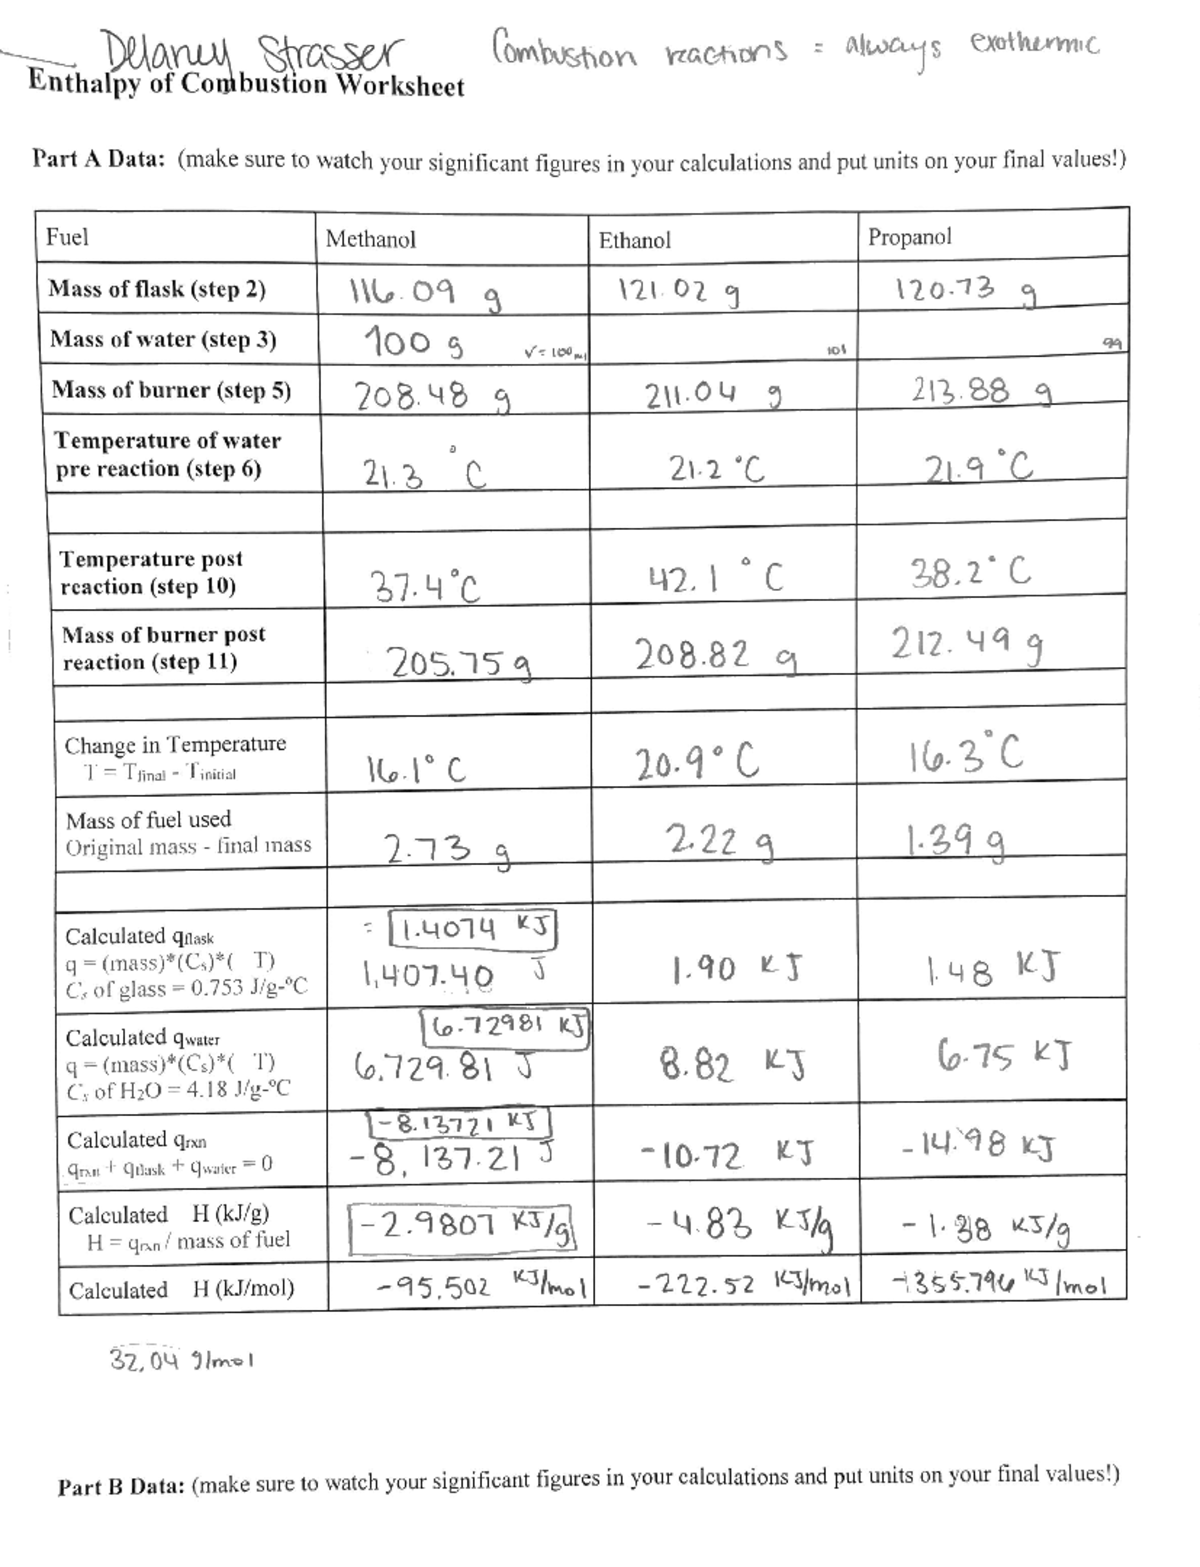 Delaney Strasser Combustion reactions = always exothermic
Enthalpy of Combustion Worksheet
Part A Data: (make sure to watch your significant figures in your calculations and put units on your final values!)
Fuel Methanol Ethanol Propanol
Mass of flask (step 2) 116.09 g 121.02 g 120.73 g
Mass of water (step 3) 100 g V = 100 ml 101 99
Mass of burner (step 5) 208.48 g 211.04 g 213.88 g
Temperature of water
pre reaction (step 6) 21.3 °C 21.2 °C 21.9 °C
Temperature post
reaction (step 10) 37.4°C 42.1 °C 38.2° C
Mass of burner post
reaction (step 11) 205.75 g 208.82 g 212.49 g
Change in Temperature
T = Tfinal - Tinitial 16.1° C 20.9° C 16.3°C
Mass of fuel used
Original mass - final mass 2.73 g 2.22 g 1.39 g
Calculated qflask = 1.4074 KJ
q = (mass)*(Cs)*( T) 1,407.40 J 1.90 KJ 1.48 KJ
Cs of glass = 0.753 J/g-°C
Calculated qwater 6.72981 KJ
q = (mass)*(Cs)*( T) 6,729.81 J 8.82 KJ 6.75 KJ
Cs of H2O = 4.18 J/g-°C
-8.13721 KJ
Calculated qrxn -8,137.21 J -10.72 KJ -14.98 KJ
qrxn + qflask + qwater = 0
Calculated H (kJ/g) -2.9807 KJ/g -4.83 KJ/g
H = qrxn / mass of fuel
Calculated H (kJ/mol) -95.502 KJ/mol -222.52 KJ/mol KJ/mol
32.04 g/mol
Part B Data: (make sure to watch your significant figures in your calculations and put units on your final values!)